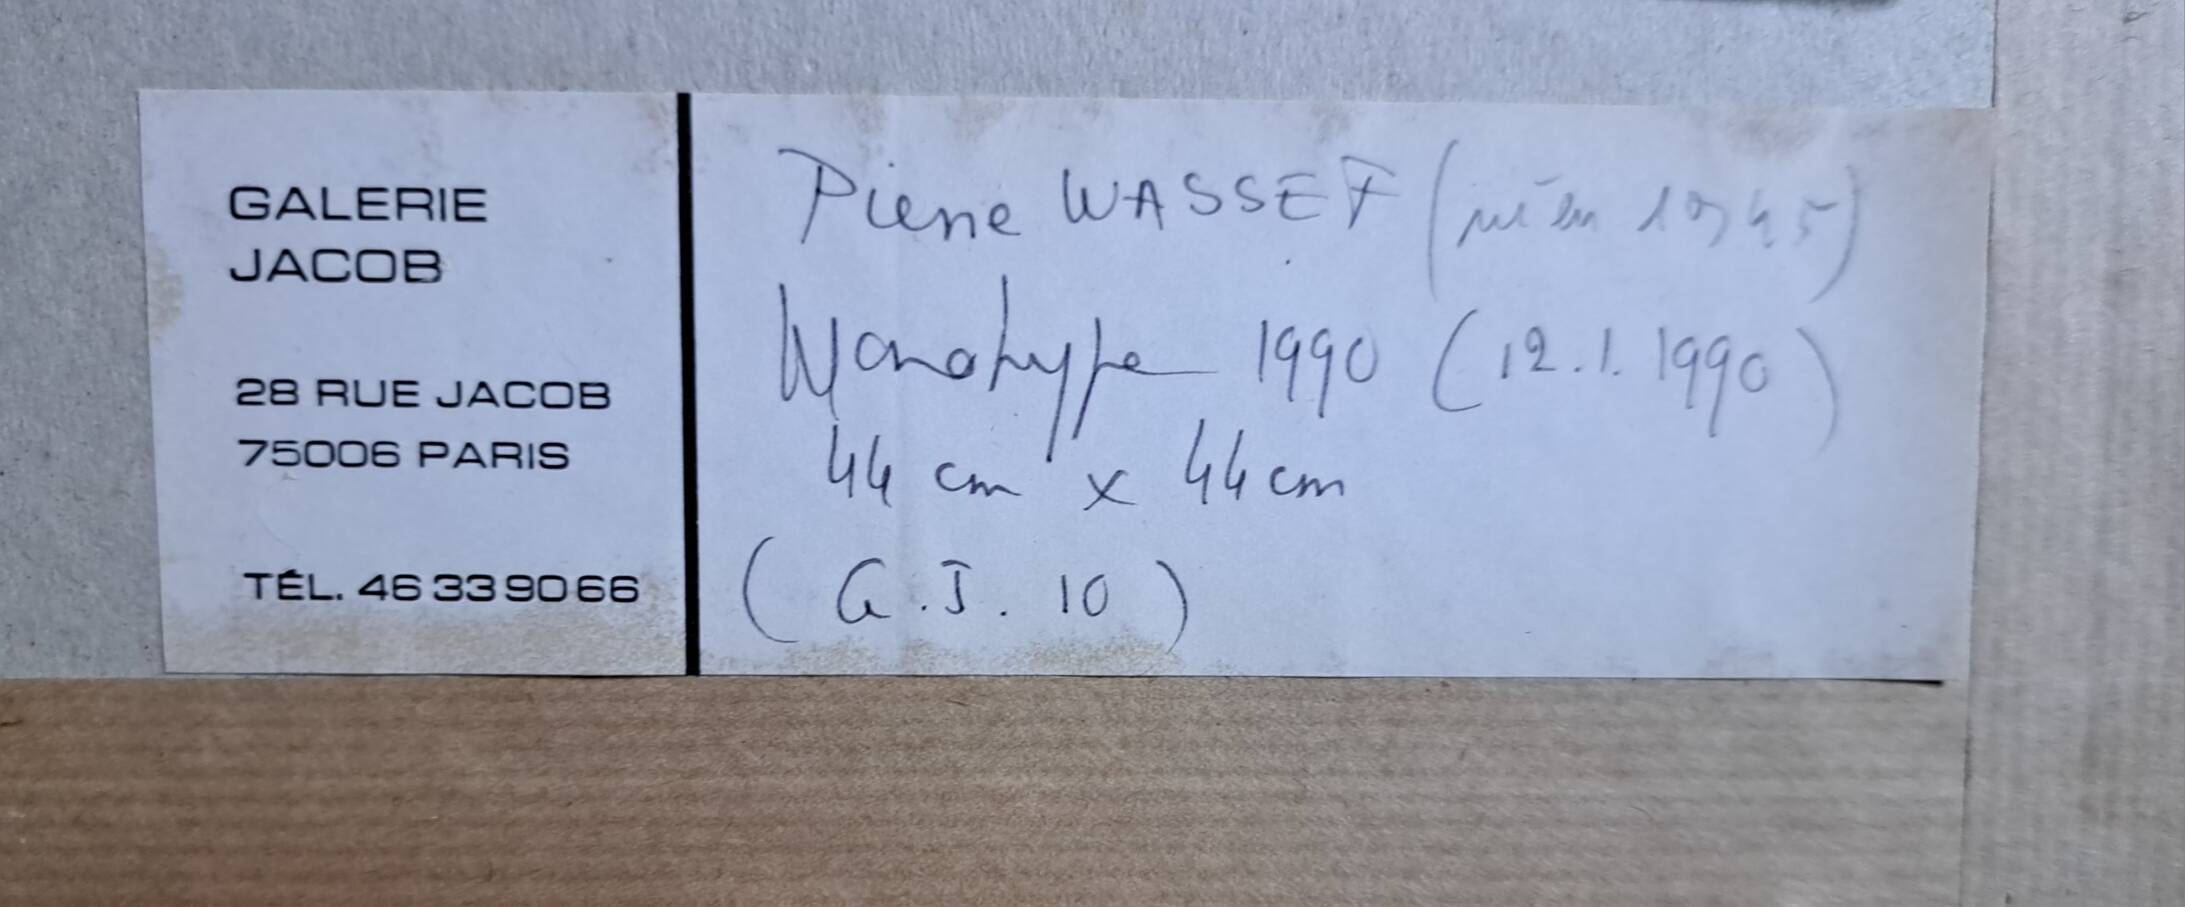 GALERIE
JACOB
28 RUE JACOB
75006 PARIS
TÉL. 46 33 90 66
Pierre WASSEF (né en 1945)
Monotype 1990 (12.1.1990)
44 cm x 44 cm
(G.J. 10)